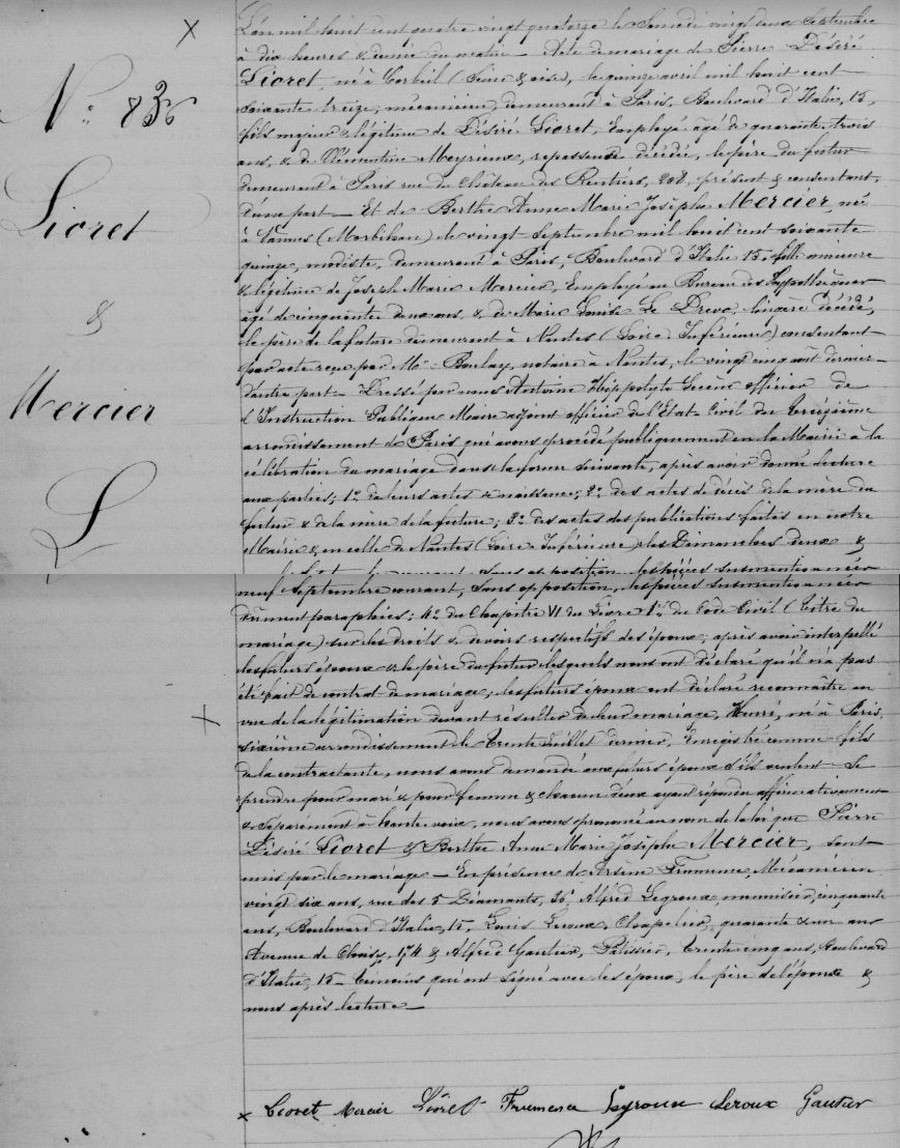 N° 836
Lioret
&
Mercier
L'an mil huit cent quatre vingt quatorze le Samedi vingt deux Septembre
à dix heures & demie du matin — Acte de mariage de Pierre Désiré
Lioret, né à Corbeil (Seine & oise), le quinze avril mil huit cent
soixante treize, mécanicien, demeurant à Paris, Boulevard d'Italie, 15,
fils majeur & légitime de Désiré Lioret, Employé, âgé de quarante trois
ans, & de Clémentine Meyrieux, repasseuse décédée, le père du futur
demeurant à Paris rue du Château des Rentiers, 208, présent & consentant,
d'une part — Et de Berthe Anne Marie Josèphe Mercier, née
à Vannes (Morbihan) le vingt Septembre mil huit cent soixante
quinze, modiste, demeurant à Paris, Boulevard d'Italie 15, fille mineure
& légitime de Joseph Marie Mercier, Employé au Bureau des Hypothèques
âgé de cinquante deux ans, & de Marie Louise Le Drevo, lingère décédée,
le père de la future demeurant à Nantes (Loire Inférieure) consentant
par acte reçu par Me Boulay, notaire à Nantes, le vingt cinq août dernier
d'autre part — Dressé par nous Antoine Hippolyte officier de
l'Instruction Publique Maire adjoint officier de l'Etat Civil du treizième
arrondissement de Paris qui avons procédé publiquement en la Mairie à la
célébration du mariage dans la forme suivante, après avoir donné lecture
aux parties, 1° de leurs actes de naissance; 2° des actes de décès de la mère du
futur & de la mère de la future; 3° des actes des publications faites en notre
Mairie & en celle de Nantes (Loire Inférieure) les Dimanches deux &
neuf Septembre courant, sans opposition, les pièces susmentionnées
dûment paraphées; 4° du Chapitre VI du Livre 1er du Code Civil (Titre du
mariage) sur les droits & devoirs respectifs des époux, après avoir interpellé
les futurs époux & le père du futur lesquels nous ont déclaré qu'il n'a pas
été fait de contrat de mariage, les futurs époux ont déclaré reconnaître en
vue de la légitimation devant résulter de leur mariage, Henri, né à Paris,
sixième arrondissement le trente Juillet dernier, Enregistré comme fils
de la contractante, nous avons demandé aux futurs époux s'ils veulent se
prendre pour mari & pour femme & chacun d'eux ayant répondu affirmativement
& séparément à haute voix, nous avons prononcé au nom de la loi que Pierre
Désiré Lioret & Berthe Anne Marie Josèphe Mercier, sont
unis par le mariage — En présence de Arsène Frumence, Mécanicien
vingt six ans, rue des 5 Diamants, 30, Alfred Legroux, menuisier, cinquante
ans, Boulevard d'Italie, 15, Louis Leroux, Chapelier, quarante & un ans
Avenue de Choisy, 174 & Alfred Gautier, Pâtissier, trente cinq ans, Boulevard
d'Italie, 15 — témoins qui ont signé avec les époux, le père de l'époux &
nous après lecture —
Lioret Mercier Lioret Frumence Legroux Leroux Gautier